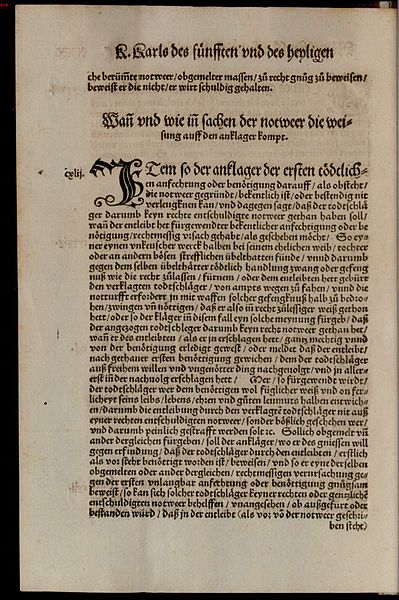 K. Karls des fünfften vnd des heyligen
che berümte notweer/ obgemelter massen/ zů recht gnůg zů beweisen/
beweist er die nicht/ er wirt schuldig gehalten.
Wañ vnd wie iñ sachen der notweer die wei-
sung auff den anklager kompt.
cxlij. ITem so der anklager der ersten tödtlich-
en anfechtung oder benötigung darauff/ als obsteht/
die notweer gegründt/ bekentlich ist/ oder bestendig nit
verleugknen kan/ vnd dagegen sagt/ daß der todtschlä
ger darumb keyn rechte entschuldigte notweer gethan haben soll/
wañ der entleibt het fürgewendter bekentlicher anfechtigung oder be
nötigung/ rechtmessig vrsach gehabt/ als geschehen möcht/ So ey-
ner eynen vnkeuscher werck halben bei seinem ehelichen weib/ tochter
oder an andern bösen strefflichen übelthatten fünde/ vnnd darumb
gegen dem selben übelthätter tödtlich handlung zwang oder gefeng
nuß wie die recht zůlassen/ fürnem/ oder dem entleibten hett gebürt
den verklagten todtschläger/ von ampts wegen zů fahen/ vnnd die
notturfft erfordert jn mit waffen solcher gefengknuß halb zů bedro-
hen/ zwingen vñ nöttigen/ daß er also iñ recht zůlessiger weiß gethon
hett/ oder so der kläger iñ disem fall eyn solche meynung fürgeb/ daß
der angezogen todtschleger darumb keyn recht notweer gethan het/
wañ er des entleibten/ als er jn erschlagen hett/ gantz mechtig vnnd
von der benötigung erledigt gewest/ oder meldet daß der entleibt/
nach gethaner ersten benötigung gewichen/ dem der todtschläger
auß freihem willen vnd vngenötter ding nachgeuolgt/ vnd jn aller-
erst iñ der nachuolg erschlagen hett/ Mer/ so fürgewendt wirdt/
der todtschläger wer dem benöttigen wol füglicher weiß vnd on fer-
licheyt seins leibs/ lebens/ ehren vnd gůten leimuts halben entwich-
en/ darumb die entleibung durch den verklagtē todtschläger nit auß
eyner rechten entschuldigten notweer/ sonder bößlich geschehen wer/
vnd darumb peinlich gestrafft werden solt ꝛc. Sollich obgemelt vñ
ander dergleichen fürgeben/ soll der ankläger/ wo er des gniessen will
gegen erfindung/ daß der todtschläger durch den entleibten/ erstlich
als vor steht benötigt worden ist/ beweisen/ vnd so er eyne der selben
obgemelten oder ander dergleichen/ rechtmessigen verursachung ge-
gen der ersten vnlaugbar anfechtung oder benötigung gnůgsam
beweist/ so kan sich solcher todtschläger keyner rechten oder gentzlichē
entschuldigten notweer behelffen/ vnangesehen/ ob außgefürt oder
bestanden würd/ daß jn der entleibt (als vor vō der notweer geschri-
ben steht)